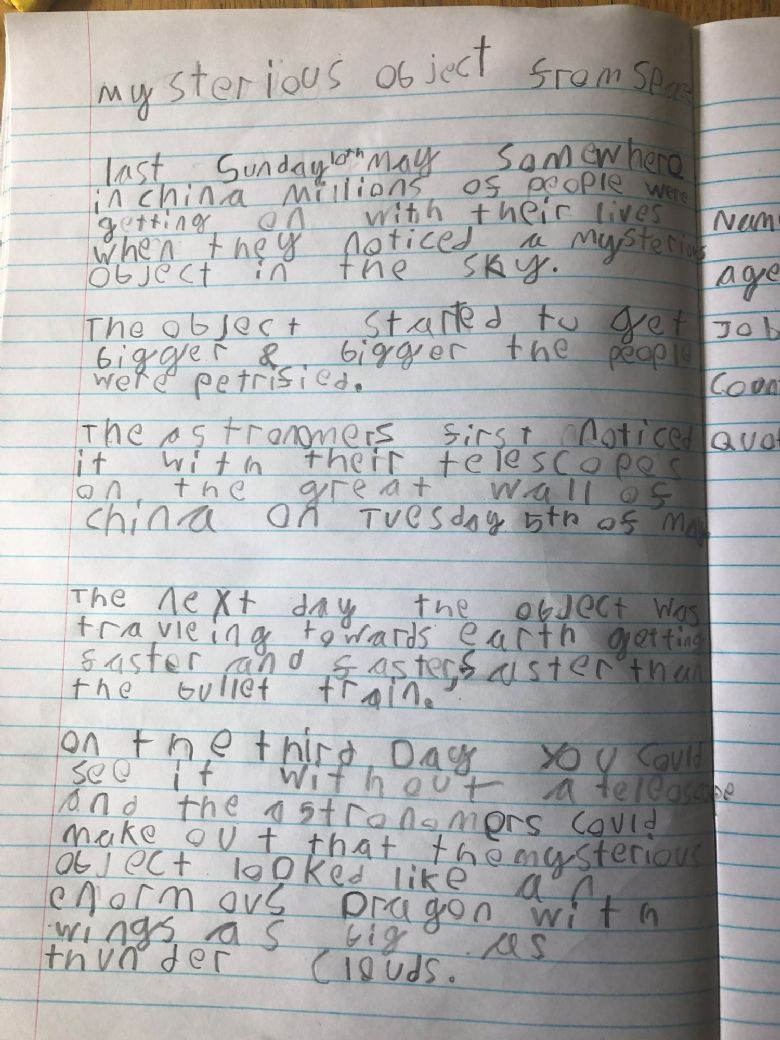 mysterious object from space
last Sunday 10th may Somewhere
in china millions of people were
getting on with their lives
when they noticed a mysterious
object in the sky.
The object started to get
bigger & bigger the people
were petrified.
The astronomers first noticed
it with their telescopes
on the great wall of
china on Tuesday 5th of May
The next day the object was
travleing towards earth getting
faster and faster, faster than
the bullet train.
on the third Day you could
see it without a teleoscope
and the astronamers could
make out that the mysterious
object looked like an
enormous Dragon with
wings as big as
thunder clouds.
Nam
age
Job
Coun
Quo